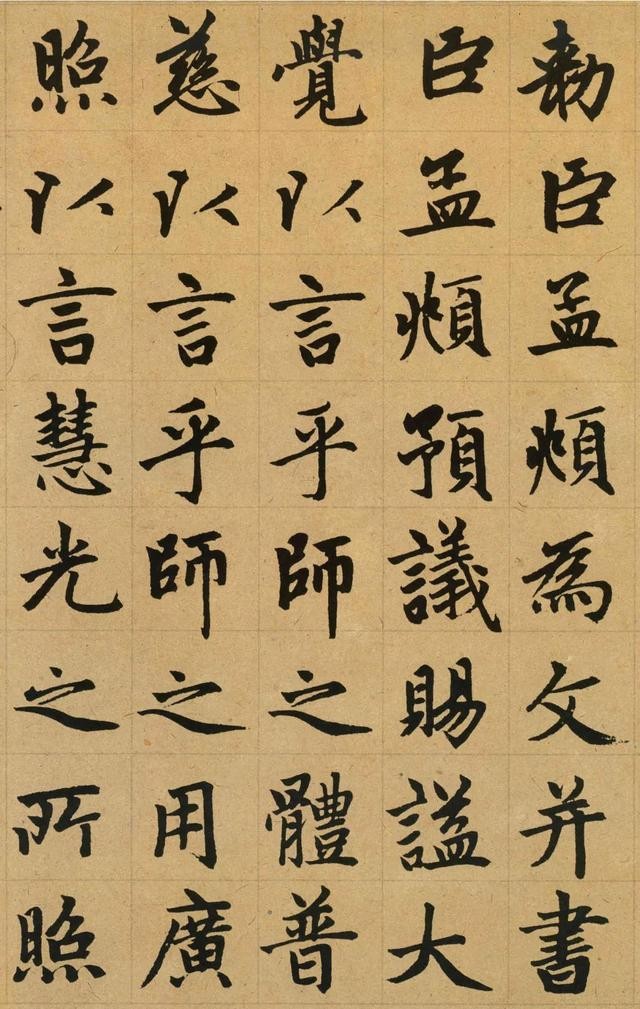 勅臣孟頫為文并書
臣孟頫預議賜謚大
覺以言乎師之體普
慈以言乎師之用廣
照以言慧光之所照